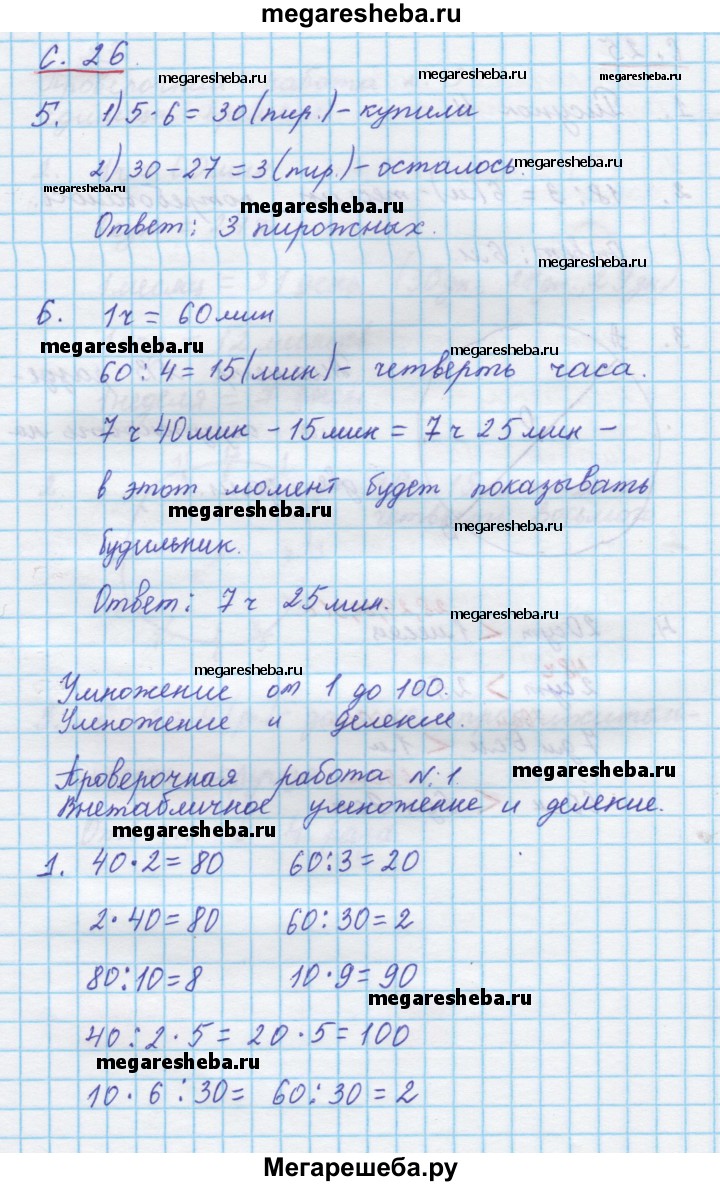 megaresheba.ru
с. 26.
megaresheba.ru
megaresheba.ru
megaresheba.ru
5. 1) 5·6=30(пир.)-купили
megaresheba.ru
2) 30-27=3(пир.)-осталось.
megaresheba.ru
megaresheba.ru
Ответ: 3 пирожных.
megaresheba.ru
6. 1ч = 60мин
megaresheba.ru
megaresheba.ru
60:4=15(мин)- четверть часа.
7 ч 40мин - 15мин = 7ч 25мин -
в этот момент будет показывать
megaresheba.ru
megaresheba.ru
будильник.
Ответ: 7ч 25мин.
megaresheba.ru
megaresheba.ru
Умножение от 1 до 100.
Умножение и деление.
megaresheba.ru
Проверочная работа №1.
Внетабличное умножение и деление.
megaresheba.ru
1. 40·2=80 60:3=20
2·40=80 60:30=2
80:10=8 10·9=90
megaresheba.ru
40:2·5=20·5=100
megaresheba.ru
10·6:30= 60:30=2
Мегарешеба.ру